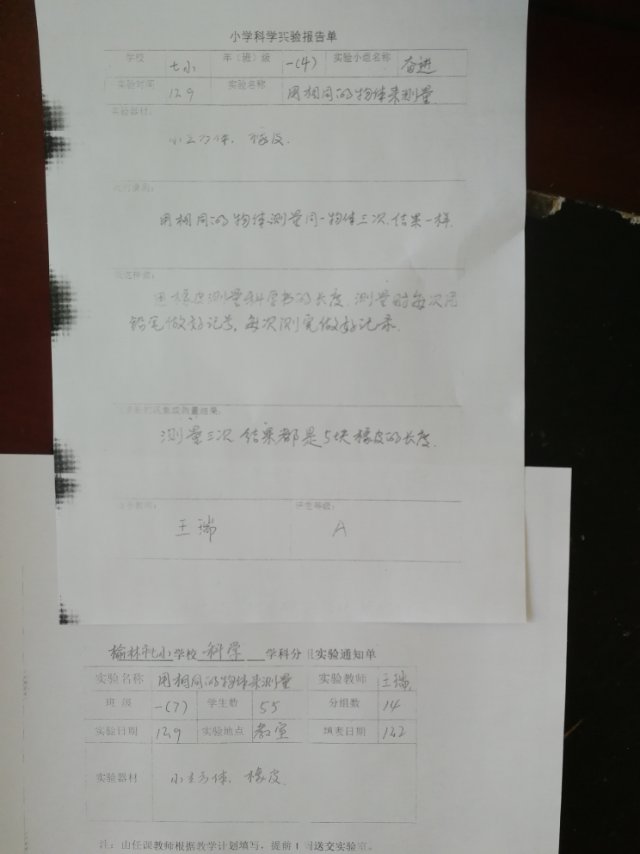 小学科学实验报告单
学校 七小 年（班）级 一(4) 实验小组名称 奋进
实验时间 12.9 实验名称 用相同的物体来测量
实验器材：
小立方体、橡皮.
用相同的物体测量同一物体三次,结果一样.
用橡皮测量科学书的长度,测量时每次用
铅笔做好记号,每次测完做好记录.
测量三次 结果都是5块橡皮的长度.
王瑞 评定等级： A
榆林七小学校 科学 学科分组实验通知单
实验名称 用相同的物体来测量 实验教师 王瑞
班 级 一(7) 学生数 55 分组数 14
实验日期 12.9 实验地点 教室 填表日期 12.2
实验器材 小立方体、橡皮
注：由任课教师根据教学计划填写，提前1周送交实验室。